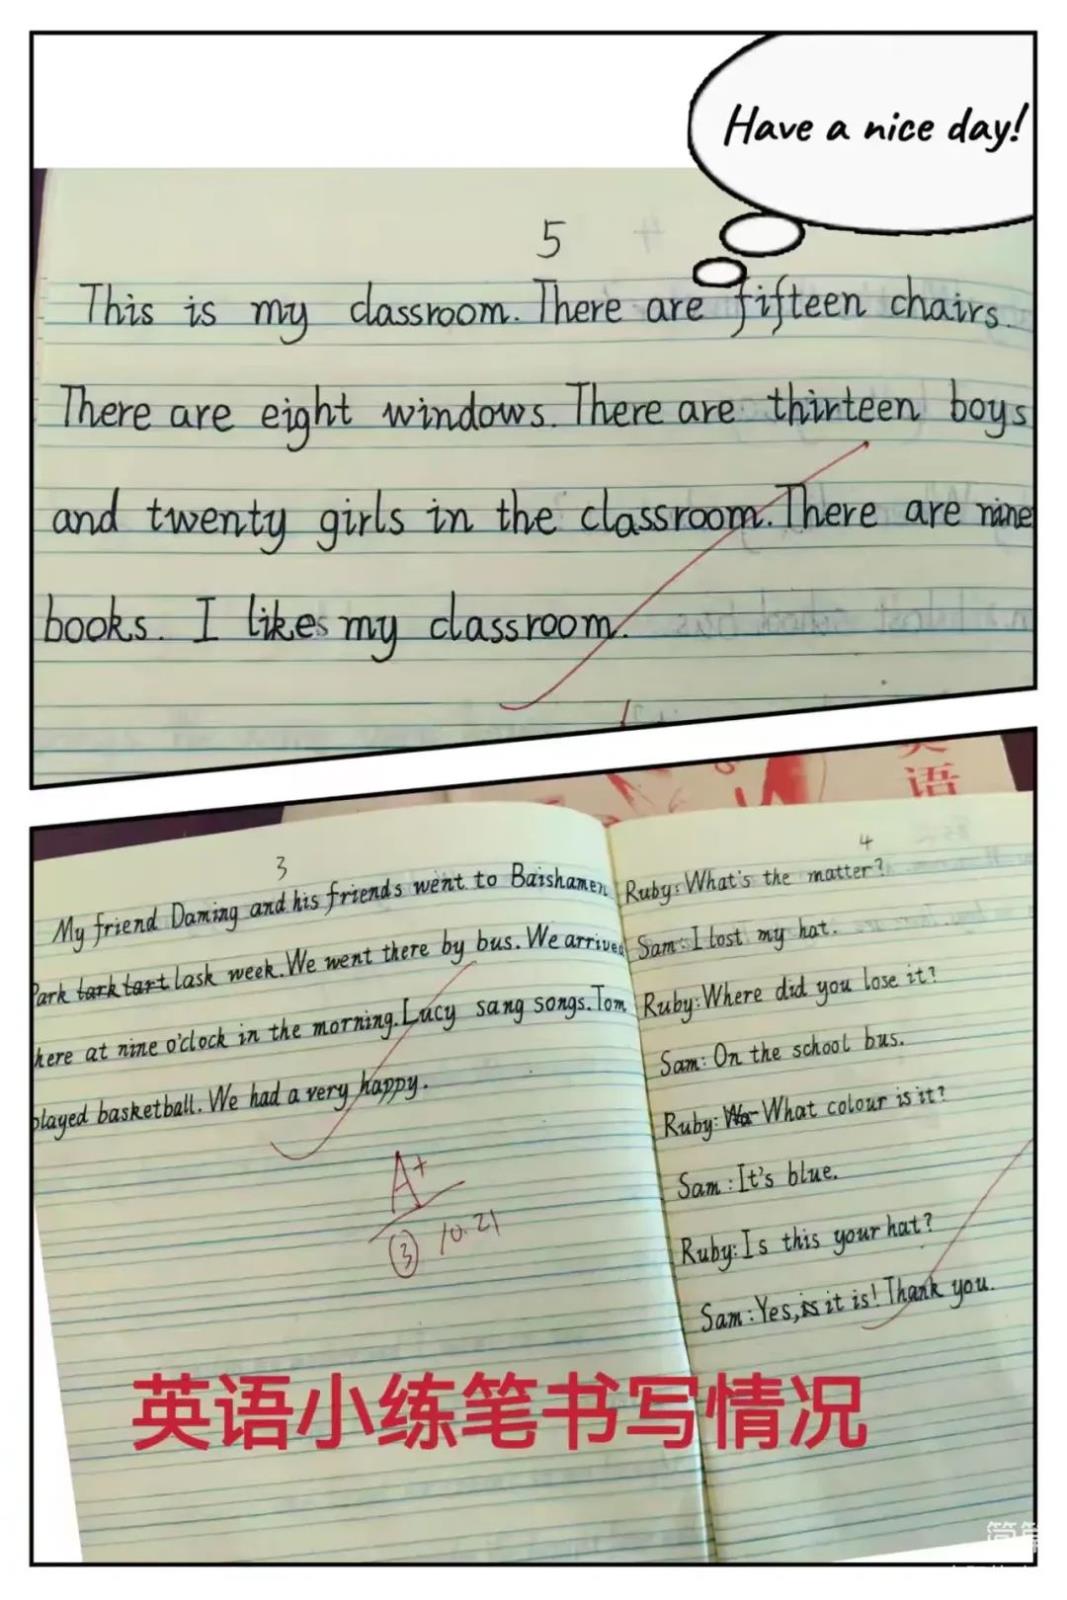 Have a nice day!
5
This is my classroom. There are fifteen chairs.
There are eight windows. There are thirteen boys
and twenty girls in the classroom. There are nine
books. I likes my classroom.
语
3
My friend Daming and his friends went to Baishamen
Park tark tart lask week. We went there by bus. We arrived
here at nine o'clock in the morning. Lucy sang songs. Tom
played basketball. We had a very happy.
A+
③ 10.21
4
Ruby: What's the matter?
Sam: I lost my hat.
Ruby: Where did you lose it?
Sam: On the school bus.
Ruby: Wa What colour is it?
Sam: It's blue.
Ruby: Is this your hat?
Sam: Yes, is it is! Thank you.
英语小练笔书写情况